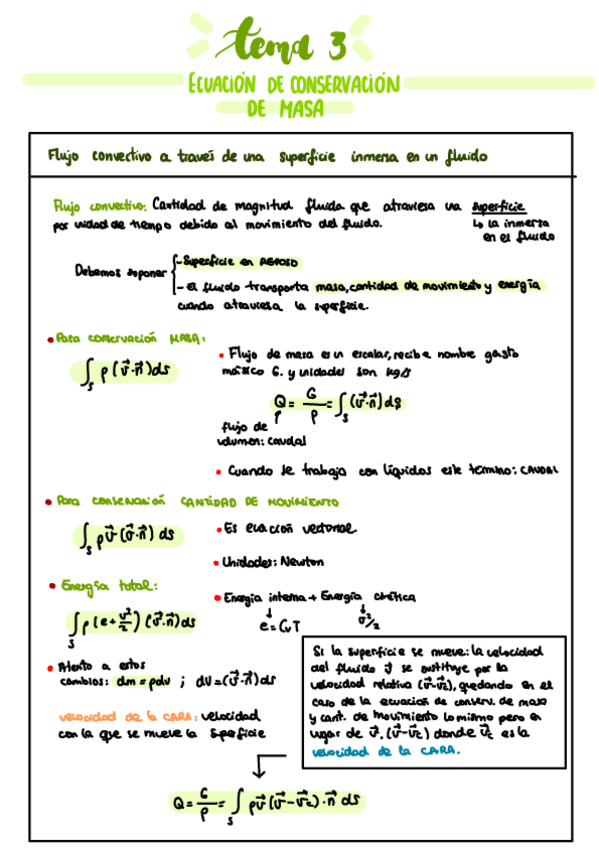 tema 3
ECUACIÓN DE CONSERVACIÓN
DE MASA
Flujo convectivo a través de una superficie inmersa en un fluido
Flujo convectivo: Cantidad de magnitud fluida que atraviesa una superficie
por unidad de tiempo debido al movimiento del fluido.
↳ la inmersa
en el fluido
Debemos suponer
- Superficie en REPOSO
- El fluido transporta masa, cantidad de movimiento y energía
cuando atraviesa la superficie.
• Para conservación MASA:
∫s ρ(v⃗·n⃗)ds
• Flujo de masa es un escalar, recibe nombre gasto
másico G. y unidades son kg/s
Q = G/ρ = ∫s (v⃗·n⃗)ds
flujo de
volumen: caudal
• Cuando se trabaja con líquidos este termino: CAUDAL
• Para conservación CANTIDAD DE MOVIMIENTO
∫s ρv⃗(v⃗·n⃗) ds
• Es ecuación vectorial.
• Unidades: Newton
• Energía total:
∫s ρ(e+v²/2)(v⃗·n⃗)ds
• Energía interna + Energía cinética
e=CvT
v²/2
• Atento a estos
cambios: dm = ρdv ; dv=(v⃗·n⃗)ds
velocidad de la CARA: velocidad
con la que se mueve la superficie
Si la superficie se mueve: la velocidad
del fluido v⃗ se sustituye por la
velocidad relativa (v⃗-v⃗c), quedando en el
caso de la ecuacion de conserv. de masa
y cant. de movimiento lo mismo pero en
lugar de v⃗, (v⃗-v⃗c) donde v⃗c es la
velocidad de la CARA.
Q = G/ρ = ∫s ρv⃗(v⃗-v⃗c)·n⃗ ds